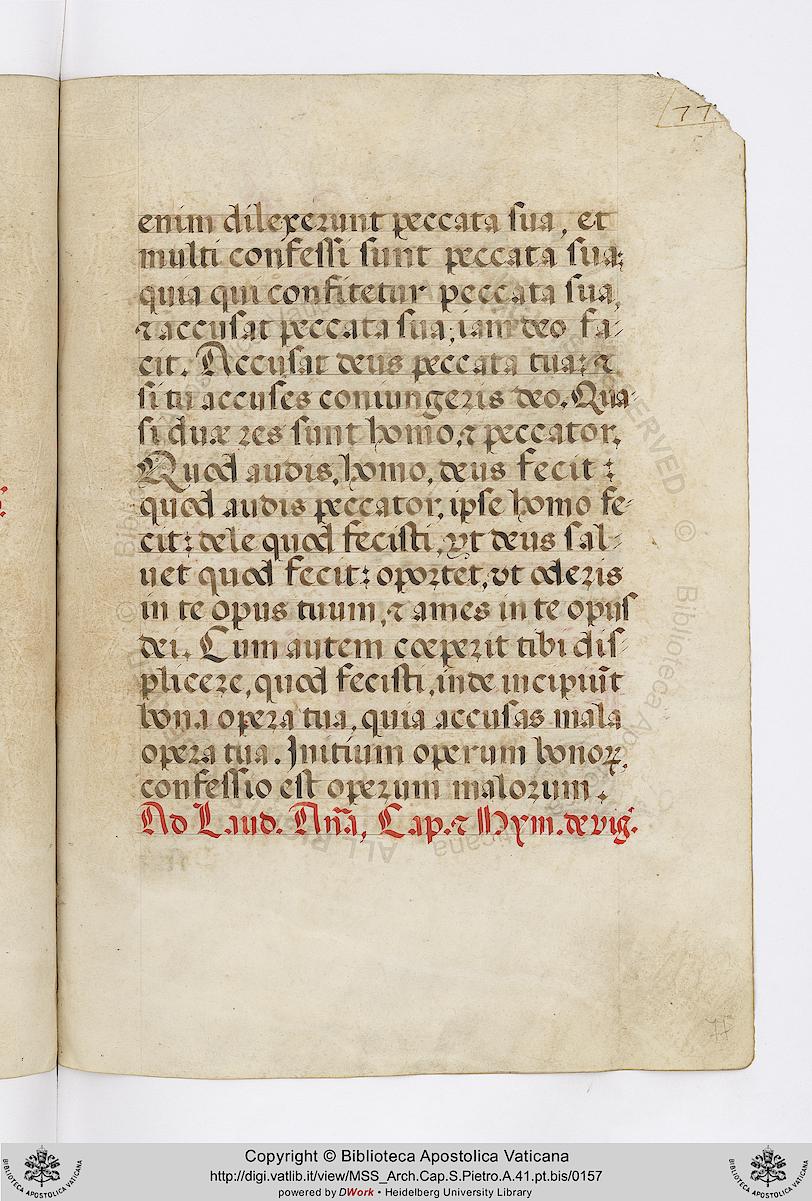 77
enim dilexerunt peccata sua, et
multi confessi sunt peccata sua:
quia qui confitetur peccata sua,
⁊ accusat peccata sua, iam deo fa-
cit. Accusat deus peccata tua: ⁊
si tu accuses coniungeris deo. Qua-
si duæ res sunt homo, ⁊ peccator.
Quod audis, homo, deus fecit:
quod audis peccator, ipse homo fe-
cit: dele quod fecisti, vt deus sal-
uet quod fecit: oportet, vt oderis
in te opus tuum, ⁊ ames in te opus
dei. Cum autem cœperit tibi dis-
plicere, quod fecisti, inde incipiūt
bona opera tua, quia accusas mala
opera tua. Initium operum bonoꝝ,
confessio est operum malorum.
Ad Laud. Añа, Cap. ⁊ Hym. de vig.
77
Copyright © Biblioteca Apostolica Vaticana
http://digi.vatlib.it/view/MSS_Arch.Cap.S.Pietro.A.41.pt.bis/0157
powered by DWork • Heidelberg University Library
BIBLIOTECA APOSTOLICA VATICANA
BIBLIOTECA APOSTOLICA VATICANA